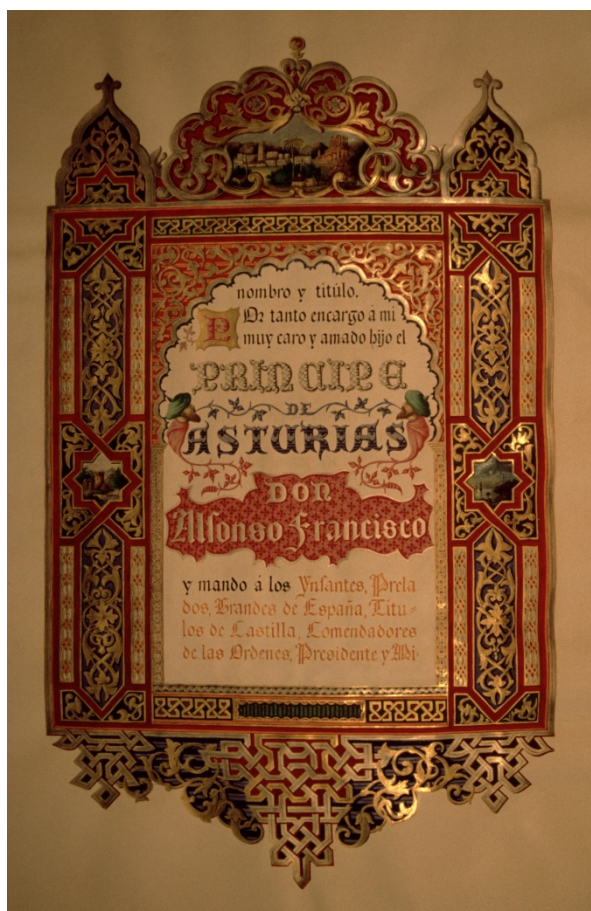 nombro y titúlo.
Por tanto encargo á mi
muy caro y amado hijo el
PRINCIPE
DE
ASTURIAS
DON
Alfonso Francisco
y mando á los Ynfantes, Prela
dos, Grandes de España, Titu-
los de Castilla, Comendadores
de las Ordenes, Presidente y Mi-